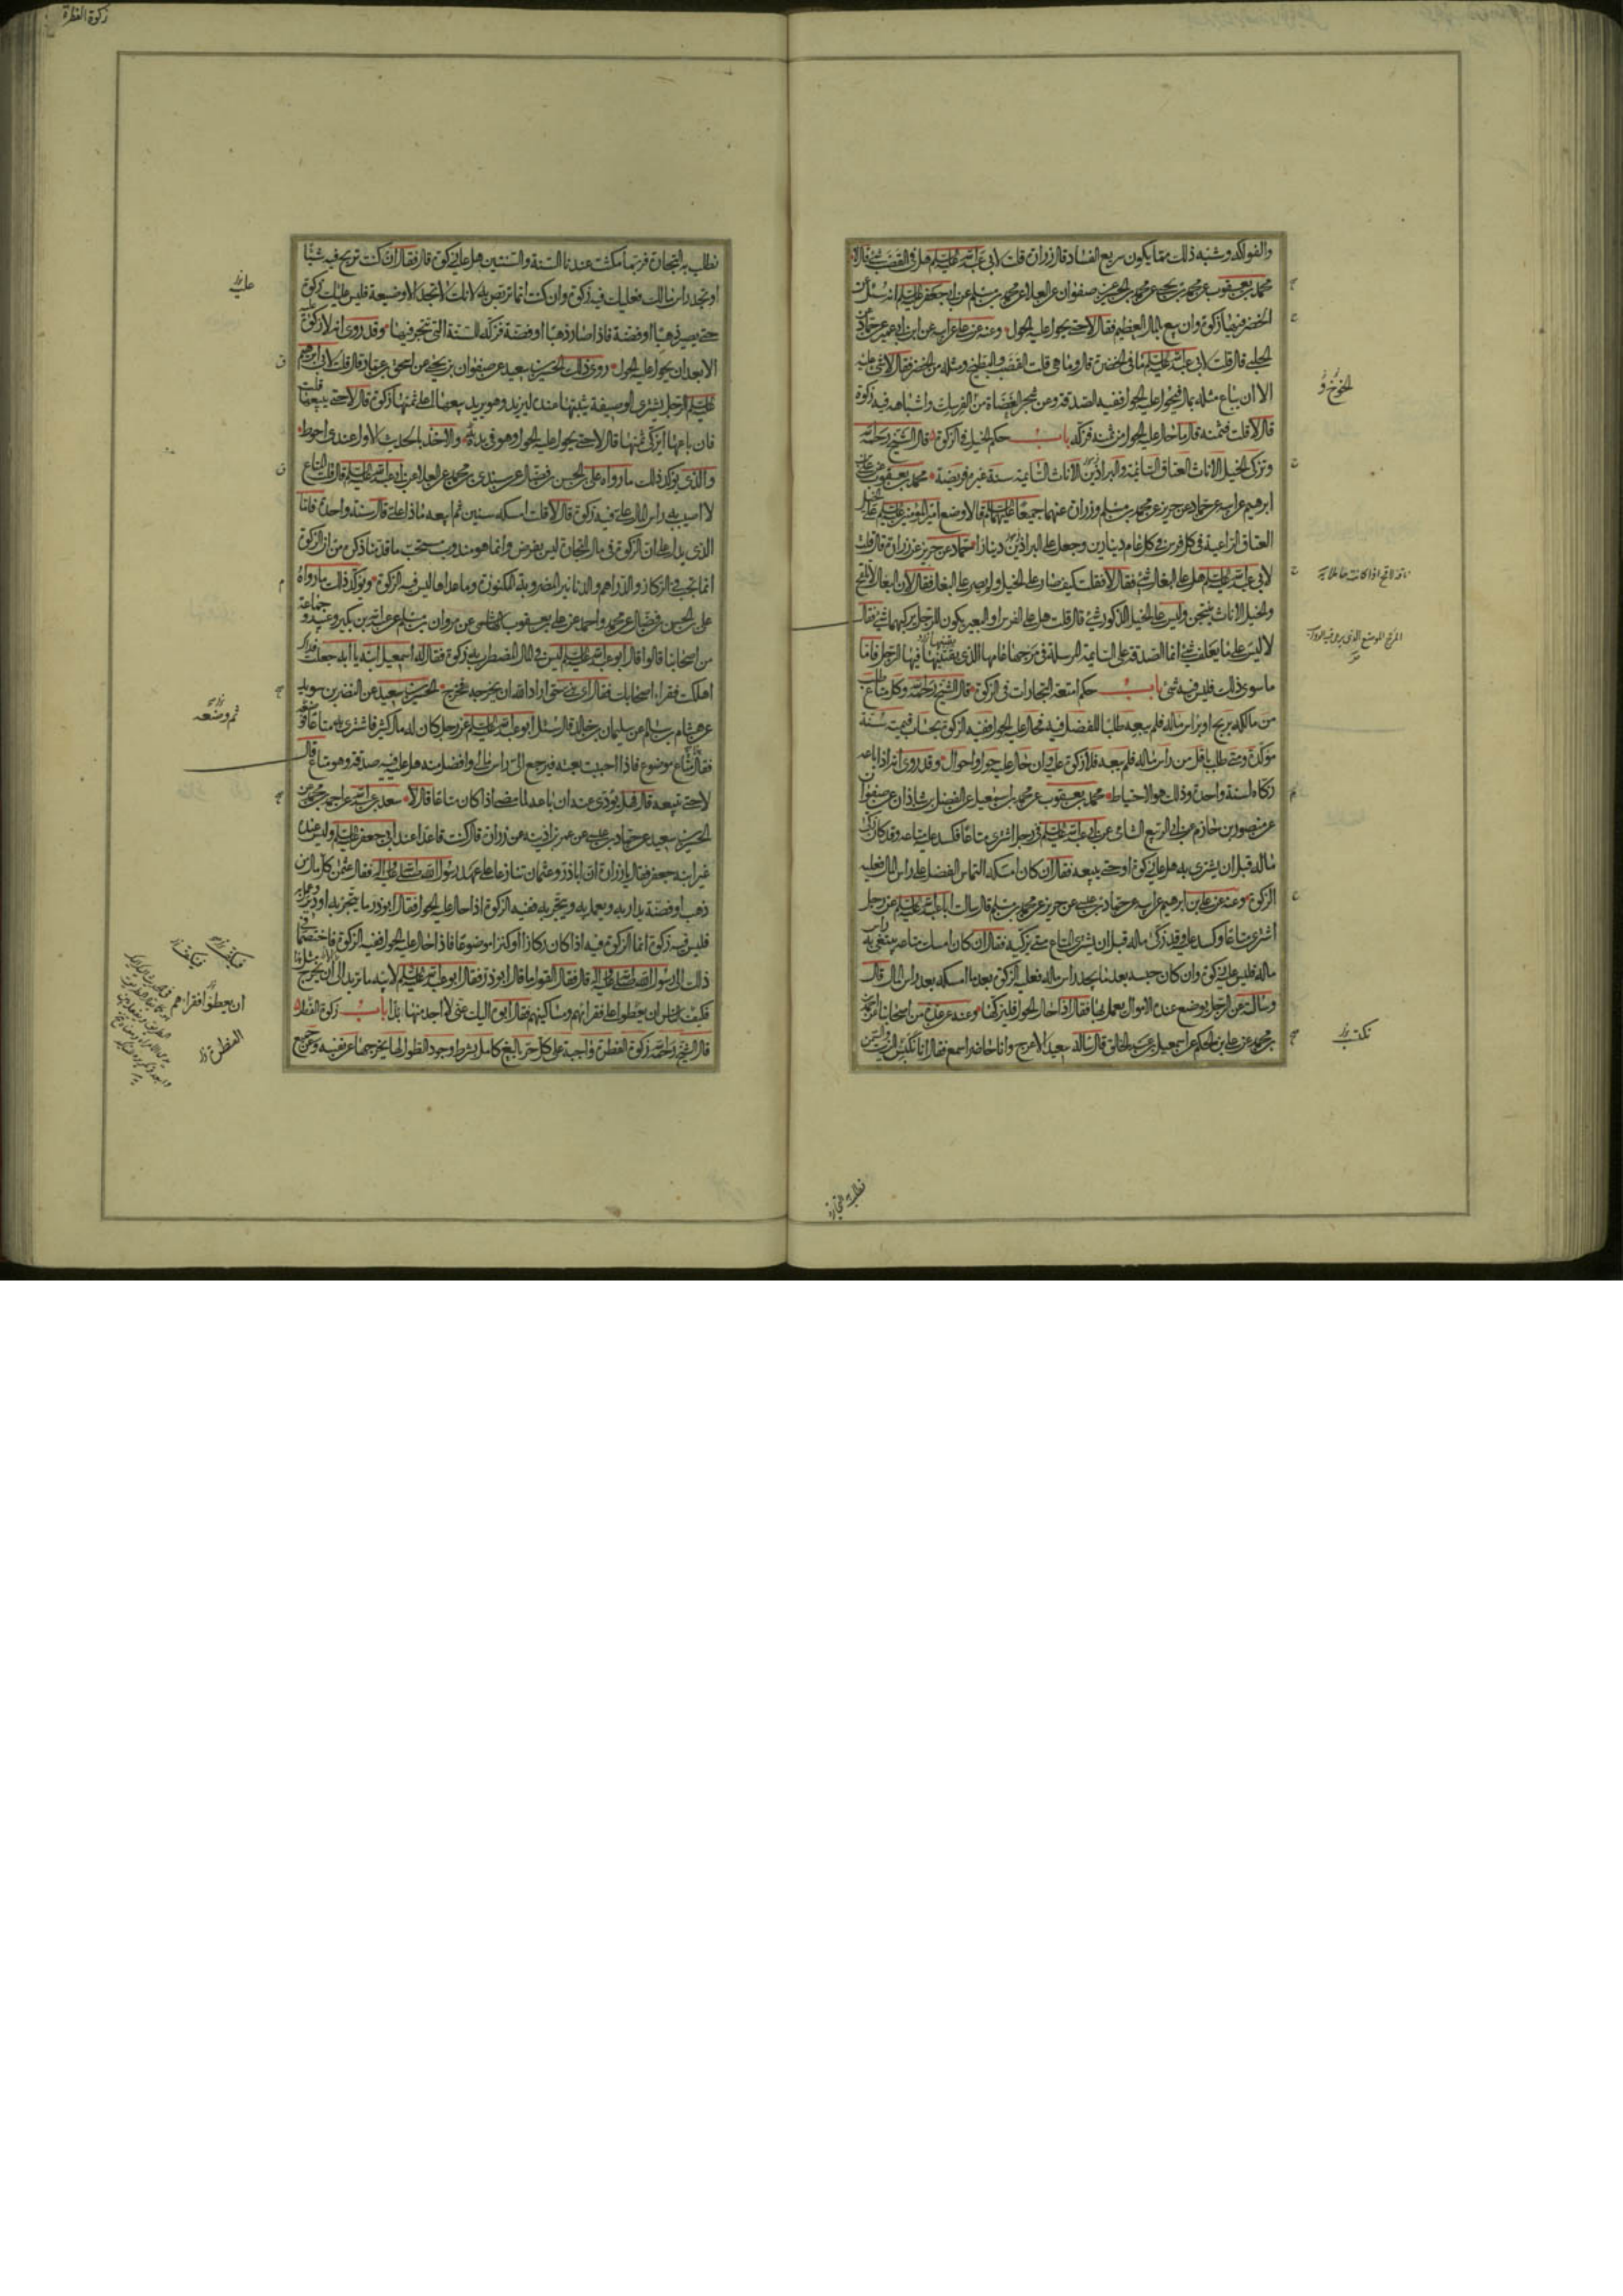 والفواكه وشبه ذلك مما يكون سريع الفساد قال زرارة قلت لابي عبد الله عليه السلام هل في القضب شئ قال لا
محمد بن يعقوب عن محمد بن يحيى عن محمد بن الحسين عن صفوان عن العلا عن محمد بن مسلم عن ابي جعفر عليه السلام انه سئل عن
الخضر فيها زكوة وان بيع بالمال العظيم فقال لا حتى يحول عليه الحول وعنه عن علي عن ابيه عن ابن ابي عمير عن حماد عن
الحلبي قال قلت لابي عبد الله عليه السلام ما في الخضرة قال وما هي قلت القضب والبطيخ ومثله من الخضر فقال لا شئ عليه
الا ان يباع مثله بمال فيحول عليه الحول ففيه الصدقة وعن شجر العضاة من الفرسك واشباهه فيه زكوة
قال لا قلت فثمنه قال ما حال عليه الحول من ثمنه فزكه باب حكم الخيل في الزكوة قال الشيخ رحمه الله
وتزكى الخيل الاناث العتاق السائمة والبراذين الاناث السائمة سنة غير فريضة محمد بن يعقوب عن علي بن
ابراهيم عن ابيه عن حماد عن حريز عن محمد بن مسلم وزرارة عنهما جميعا عليهما السلام قالا وضع امير المؤمنين عليه السلام على الخيل
العتاق الراعية في كل فرس في كل عام دينارين وجعل على البراذين دينارا حماد عن حريز عن زرارة قال قلت
لابي عبد الله عليه السلام هل على البغال شئ فقال لا فقلت كيف صار على الخيل ولم يصر على البغال فقال لان البغال لا تلقح
والخيل الاناث ينتجن وليس على الخيل الذكور شئ قال قلت هل على الفرس او البعير يكون للرجل يركبهما شئ فقال
لا ليس على ما يعلف شئ انما الصدقة على السائمة المرسلة في مرجها عامها الذي يقتنيها فيها الرجل فاما
ما سوى ذلك فليس فيه شئ باب حكم امتعة التجارات في الزكوة قال الشيخ رحمه الله وكل متاع
من مالكه بربح او براس ماله فلم يبعه طلبا للفضل فيه فحال عليه الحول ففيه الزكوة بحساب قيمته سنة
مؤكدة ومتى طلب باقل من رأس ماله فلم يبعه فلا زكوة عليه وان حال عليه حول واحوال وقد روى انه اذا باعه
زكاه لسنة واحدة وذلك هو الاحتياط محمد بن يعقوب عن محمد بن اسمعيل عن الفضل بن شاذان عن صفوان
عن منصور بن حازم عن ابي الربيع الشامي عن ابي عبد الله عليه السلام في رجل اشترى متاعا فكسد عليه متاعه وقد كان زكى
ماله قبل ان يشتري به هل عليه زكوة او حتى يبيعه فقال ان كان امسكه التماس الفضل على راس المال فعليه
الزكوة وعنه عن علي بن ابراهيم عن ابيه عن حماد بن عيسى عن حريز عن محمد بن مسلم قال سالت ابا عبد الله عليه السلام عن رجل
اشترى متاعا وكسد عليه وقد زكى ماله قبل ان يشترى المتاع متى يزكيه فقال ان كان امسك متاعه يبتغي به راس
ماله فليس عليه زكوة وان كان حبسه بعد ما يجد راس ماله فعليه الزكوة بعد ما امسكه بعد راس المال قال
وسالته عن الرجل يوضع عنده الاموال يعمل بها فقال اذا حال الحول فليزكها وعنه عن عدة من اصحابنا عن احمد
بن محمد عن علي بن الحكم عن اسمعيل بن عبد الخالق قال ساله سعيد الاعرج وانا حاضر اسمع فقال انا نكبس الزيت والسمن
الخوخ
ناقة لاقح اذا كانت حاملا
المرج الموضع الذي يرعى فيه الدواب
نكتب
نطلب به التجارة
زكوة الفطرة
نطلب به التجارة فربما مكث عندنا السنة والسنتين هل عليه زكوة قال فقال ان كنت تربح فيه شيئا
او تجد راس مالك فعليك فيه زكوة وان كنت انما تربص به لانك لا تجد الا وضيعة فليس عليك زكوة
حتى يصير ذهبا او فضة فاذا صار ذهبا او فضة فزكه للسنة التي تتجر فيها وقد روى انه لا زكوة عليه
الا بعد ان يحول عليه الحول روى ذلك الحسين بن سعيد عن صفوان بن يحيى عن اسحق بن عمار قال قلت لابي ابراهيم
عليه السلام الرجل يشترى الوصيفة يثبتها عنده لتزيد وهو يريد بيعها اعلى ثمنها زكوة قال لا حتى يبيعها قلت
فان باعها ايزكى ثمنها قال لا حتى يحول عليه الحول وهو في يديه والاخذ بالحديث الاول عندى احوط
والذي يؤكد ذلك ما رواه علي بن الحسن بن فضال عن سندي بن محمد عن العلا عن ابي عبد الله عليه السلام قال قلت المتاع
لا اصيب به راس المال علي فيه زكوة قال لا قلت امسكه سنين ثم ابيعه ماذا علي قال سنة واحدة فاما
الذي يدل على ان الزكوة في مال التجارة ليس بفرض وانما هو مندوب مستحب ما قدمنا ذكره من ان الزكوة
انما تجب في الركاز والدراهم والدنانير المضروبة المكنوزة وما عداها ليس فيه الزكوة ويؤكد ذلك ما رواه
علي بن الحسن بن فضال عن محمد واحمد عن علي بن يعقوب الهاشمي عن مروان بن مسلم عن عبد الله بن بكير وعبيد وجماعة
من اصحابنا قالوا قال ابو عبد الله عليه السلام ليس في المال المضطرب به زكوة فقال له اسمعيل ابنه يا ابه جعلت فداك
اهلكت فقراء اصحابك فقال اى بني حق اراد الله ان يخرجه فخرج الحسين بن سعيد عن النضر بن سويد
عن هشام بن سالم عن سليمان بن خالد قال سئل ابو عبد الله عليه السلام عن رجل كان له مال كثير فاشترى به متاعا ثم وضعه
فقال هذا متاع موضوع فاذا احببت بعته فيرجع الى راس مالى وافضل منه هل عليه فيه صدقة وهو متاع قال
لا حتى تبيعه قال فهل يؤدى عنه ان باعه لما مضى اذا كان متاعا قال لا سعد بن عبد الله عن احمد بن محمد عن
الحسين بن سعيد عن حماد بن عيسى عن عمر بن اذينه عن زرارة قال كنت قاعدا عند ابي جعفر عليه السلام وليس عنده
غير ابنه جعفر فقال يا زرارة ان اباذر وعثمان تنازعا على عهد رسول الله صلى الله عليه واله فقال عثمن كل مال من
ذهب او فضة يدار به ويعمل به ويتجر به ففيه الزكوة اذا حال عليه الحول فقال ابو ذر ما يتجر به او دير وعمل به
فليس فيه زكوة انما الزكوة فيه اذا كان ركازا او كنزا موضوعا فاذا حال عليه الحول ففيه الزكوة فاختصما في
ذلك الى رسول الله صلى الله عليه واله قال فقال القول ما قال ابوذر فقال ابو عبد الله عليه السلام لابيه ما تريد الى ان يخرج مثل هذا
فيكف الناس ان يعطوا على فقرائهم ومساكينهم فقال ابوه اليك عني لا اجد منها بدا باب زكوة الفطرة
قال الشيخ رحمه الله زكوة الفطرة واجبة على كل حر بالغ كامل بشرط وجود الطول لها يخرجها عن نفسه وعن جميع
عليه
ثم وضعه
فيكف
ان يعطوا فقراءهم
الفطرة